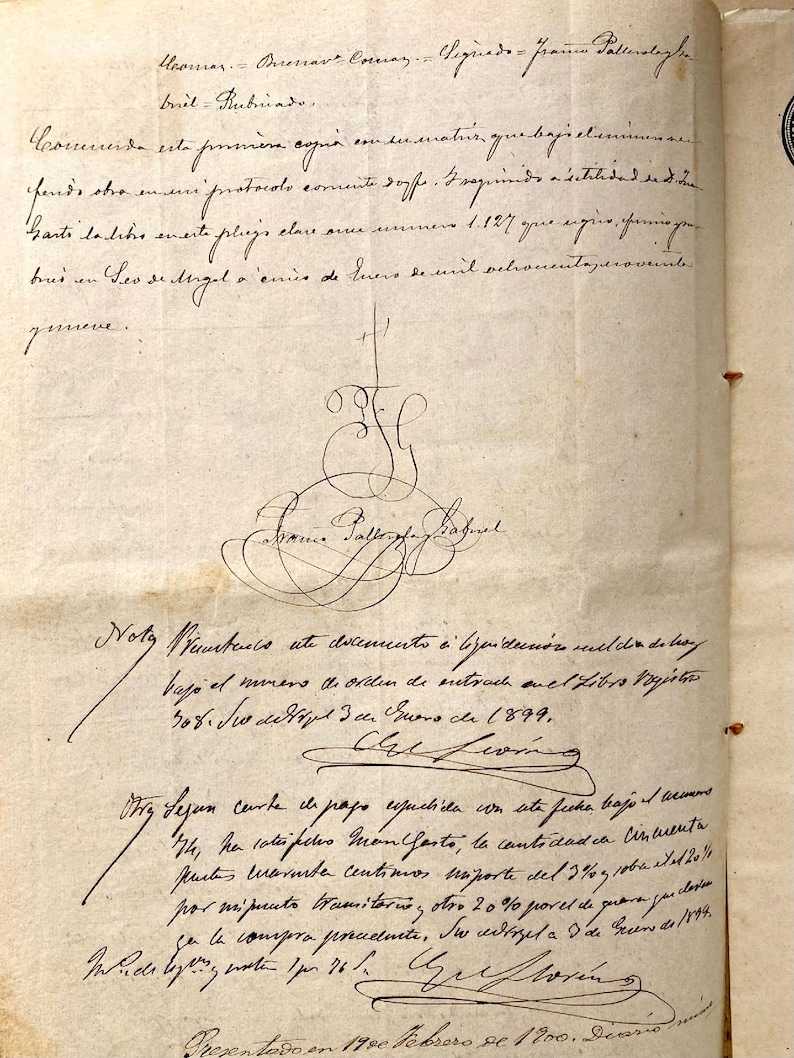 Comas. = Buenavª Comas. = Signado = Franco Pallerola y Ga
briel = Rubricado.
Concuerda esta primera copia con su matriz, que bajo el número re-
ferido obra en mi protocolo corriente doy fe. Y requirido a utilidad de D. Juan
Gastó la libro en este pliego clase once numero 1.127 que signo, firmo y ru-
brico en Seo de Urgel a cinco de Enero de mil ochocientos noventa
y nueve.
PFG
Franco Pallerola y Gabriel
Nota Presentado este documento á liquidacion en el dia de hoy
bajo el numero de orden de entrada en el Libro registro
708. Seo de Urgel 3 de Enero de 1899.
Florin
Otra Segun carta de pago expedida con esta fecha bajo el numero
74, ha satisfecho Juan Gastó, la cantidad de cincuenta
pesetas cuarenta centimos importe del 3% y sobre el el 20%
por impuesto transitorio y otro 20% por el de guerra que deven
ga la compra precedente. Seo de Urgel a 3 de Enero de 1899.
y nota 1 pta 76
Florin
Presentado en 19 de Febrero de 1900. Diario